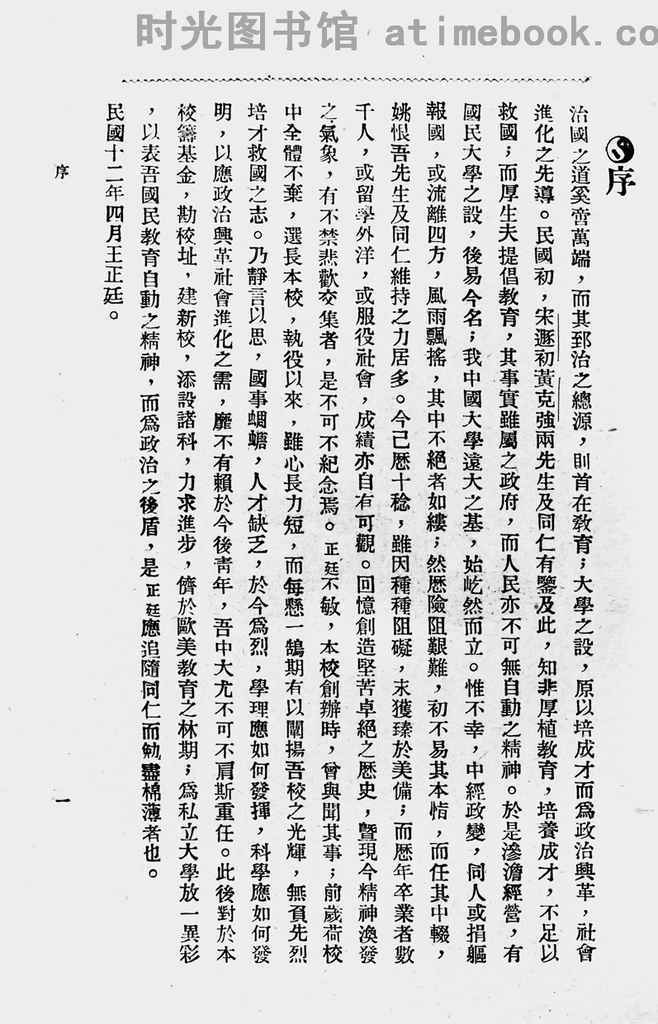 时光图书馆 atimebook.co
序
治國之道奚啻萬端，而其郅治之總源，則首在教育；大學之設，原以培成才而爲政治興革，社會
進化之先導。民國初，宋遯初黃克強兩先生及同仁有鑒及此，知非厚植教育，培養成才，不足以
救國；而厚生夫提倡教育，其事實雖屬之政府，而人民亦不可無自動之精神。於是滲澹經營，有
國民大學之設，後易今名；我中國大學遠大之基，始屹然而立。惟不幸，中經政變，同人或捐軀
報國，或流離四方，風雨飄搖，其中不絕者如縷；然歷險阻艱難，初不易其本情，而任其中輟，
姚恨吾先生及同仁維持之力居多。今已歷十稔，雖因種種阻礙，末獲臻於美備；而歷年卒業者數
千人，或留學外洋，或服役社會，成績亦自有可觀。回憶創造堅苦卓絕之歷史，暨現今精神渙發
之氣象，有不禁悲歡交集者，是不可不紀念焉。正廷不敏，本校創辦時，曾與聞其事；前歲荷校
中全體不棄，選長本校，執役以來，雖心長力短，而每懸一鵠期有以闡揚吾校之光輝，無負先烈
培才救國之志。乃靜言以思，國事蜩螗，人才缺乏，於今爲烈，學理應如何發揮，科學應如何發
明，以應政治興革社會進化之需，靡不有賴於今後靑年，吾中大尤不可不肩斯重任。此後對於本
校籌基金，勘校址，建新校，添設諸科，力求進步，儕於歐美教育之林期；爲私立大學放一異彩
，以表吾國民教育自動之精神，而爲政治之後盾，是正廷應追隨同仁而勉盡棉薄者也。
民國十二年四月王正廷。
序
一